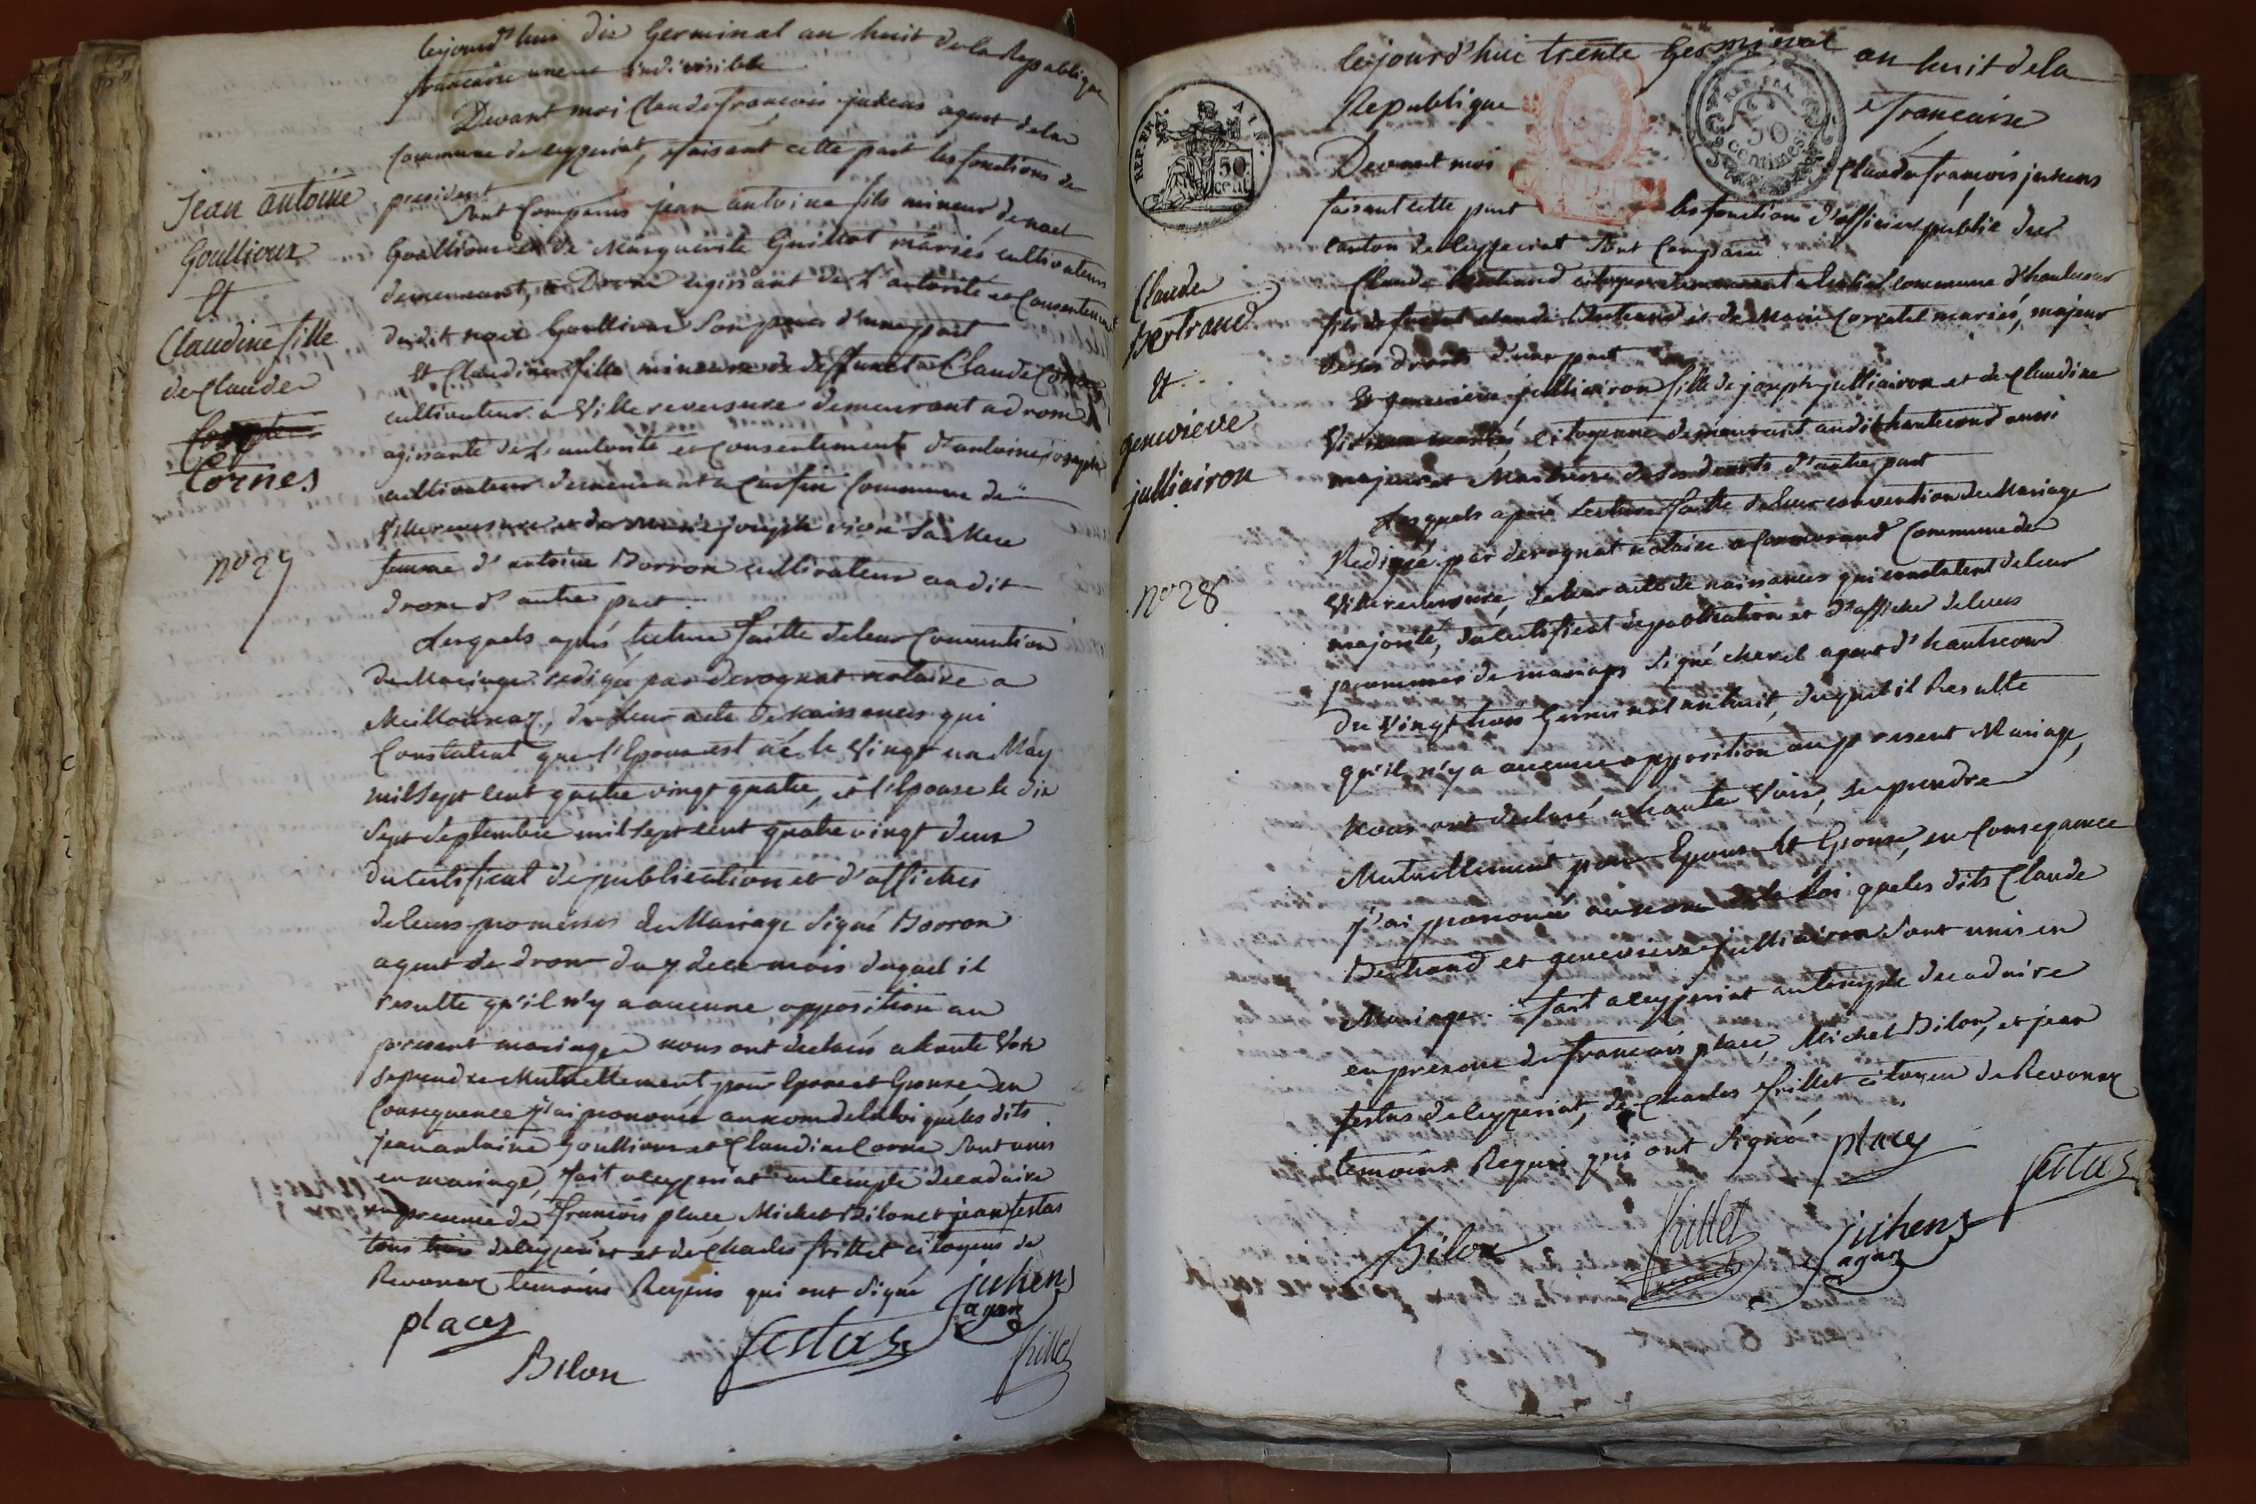 Cejourd'hui dix Germinal an huit de la Republique
francaise une et indivisible
Devant moi Claude françois juhens agent de la
Commune de ceyzeriat, faisant cette part les fonctions de
president
Sont Comparus jean antoine fils mineur de noel
Goullioux et de Marguerite Guillot mariés cultivateurs
demeurant a Drom agissant de L'autorité et Consentement
dudit noel Goullioux Son pere d'une part
Et Claudine fille mineure de deffunct Claude Cornes
cultivateur a Villereversure demeurant a drom
agissante de L'autorité et Consentement d'antoine joseph
cultivateur demeurant a Commune de
Villereversure et de marie joseph vion Sa Mere
femme d'antoine Borron cultivateur audit
drom d'autre part
Lesquels après lecture faitte de leur Convention
de Mariage redigée par derognat notaire a
Meillonnaz, de leur acte de naissances qui
Constatent que l'Epoux est né le Vingt un May
mil Sept Cent quatre vingt quatre, et l'Epouse le dix
Sept Septembre mil Sept cent quatre vingt deux
du certificat de publication et d'affiches
de leurs promesses de Mariage Signé Borron
agent de drom du 7 de ce mois duquel il
resulte qu'il n'y a aucune opposition au
present mariage nous ont declarés a haute Voix
Se prendre Mutuellement pour Epoux et Epouse, en
Consequence j'ai prononcé au nom de la loi que les dits
jean antoine Goullioux et Claudine Corne Sont unis
en mariage, fait a ceyzeriat au temple decadaire
en presence de françois place Michel Bilon et jean festas
tous trois de ceyzeriat et de Charles frillet citoyens de
Revonnaz temoins Requis qui ont Signé
juhens
agent
places
Bilon
festas
frillet
Jean antoine
Goullioux
Et
Claudine fille
de Claude
Cornes
no 27
REP. FRA.
50
cent.
REP. FRA.
50
centimes
Cejourd'hui trente Germinal an huit de la
Republique francaise
Devant moi Claude françois juhens
faisant cette part les fonctions d'officier public du
canton de Ceyzeriat Sont Comparus
Claude Bertrand demeurant a commune d'hautecour
fils de Claude Bertrand et de Marie mariés, majeur
de ses droits d'une part
Et genevieve julliairon fille de joseph julliairon et de Claudine
mariés, citoyenne demeurant audit hautecour aussi
majeure et Maitresse de Ses droits d'autre part
Lesquels après Lecture faitte de leur convention de Mariage
Redigée par derognat notaire a Commune de
Villereversure, de leur acte de naissances qui constatent de leur
majorité, du certificat de publication et d'affiches de leurs
promesses de mariage Signé chevet agent d'hautecour
du Vingt trois Germinal an huit, duquel il Resulte
qu'il n'y a aucune opposition au present Mariage,
Nous ont declaré a haute Voix, Se prendre
Mutuellement pour Epoux et Epouse, en Consequence
j'ai prononcé au nom de la loi que les dits Claude
Bertrand et genevieve julliairon Sont unis en
Mariage. fait a ceyzeriat au temple decadaire
en presence de françois place, Michel Bilon, et jean
festas de ceyzeriat, de Charles frillet citoyen de Revonnaz
temoins Requis qui ont Signé
places
festas
Bilon
frillet
juhens
agent
Claude
Bertrand
Et
genevieve
julliairon
no 28